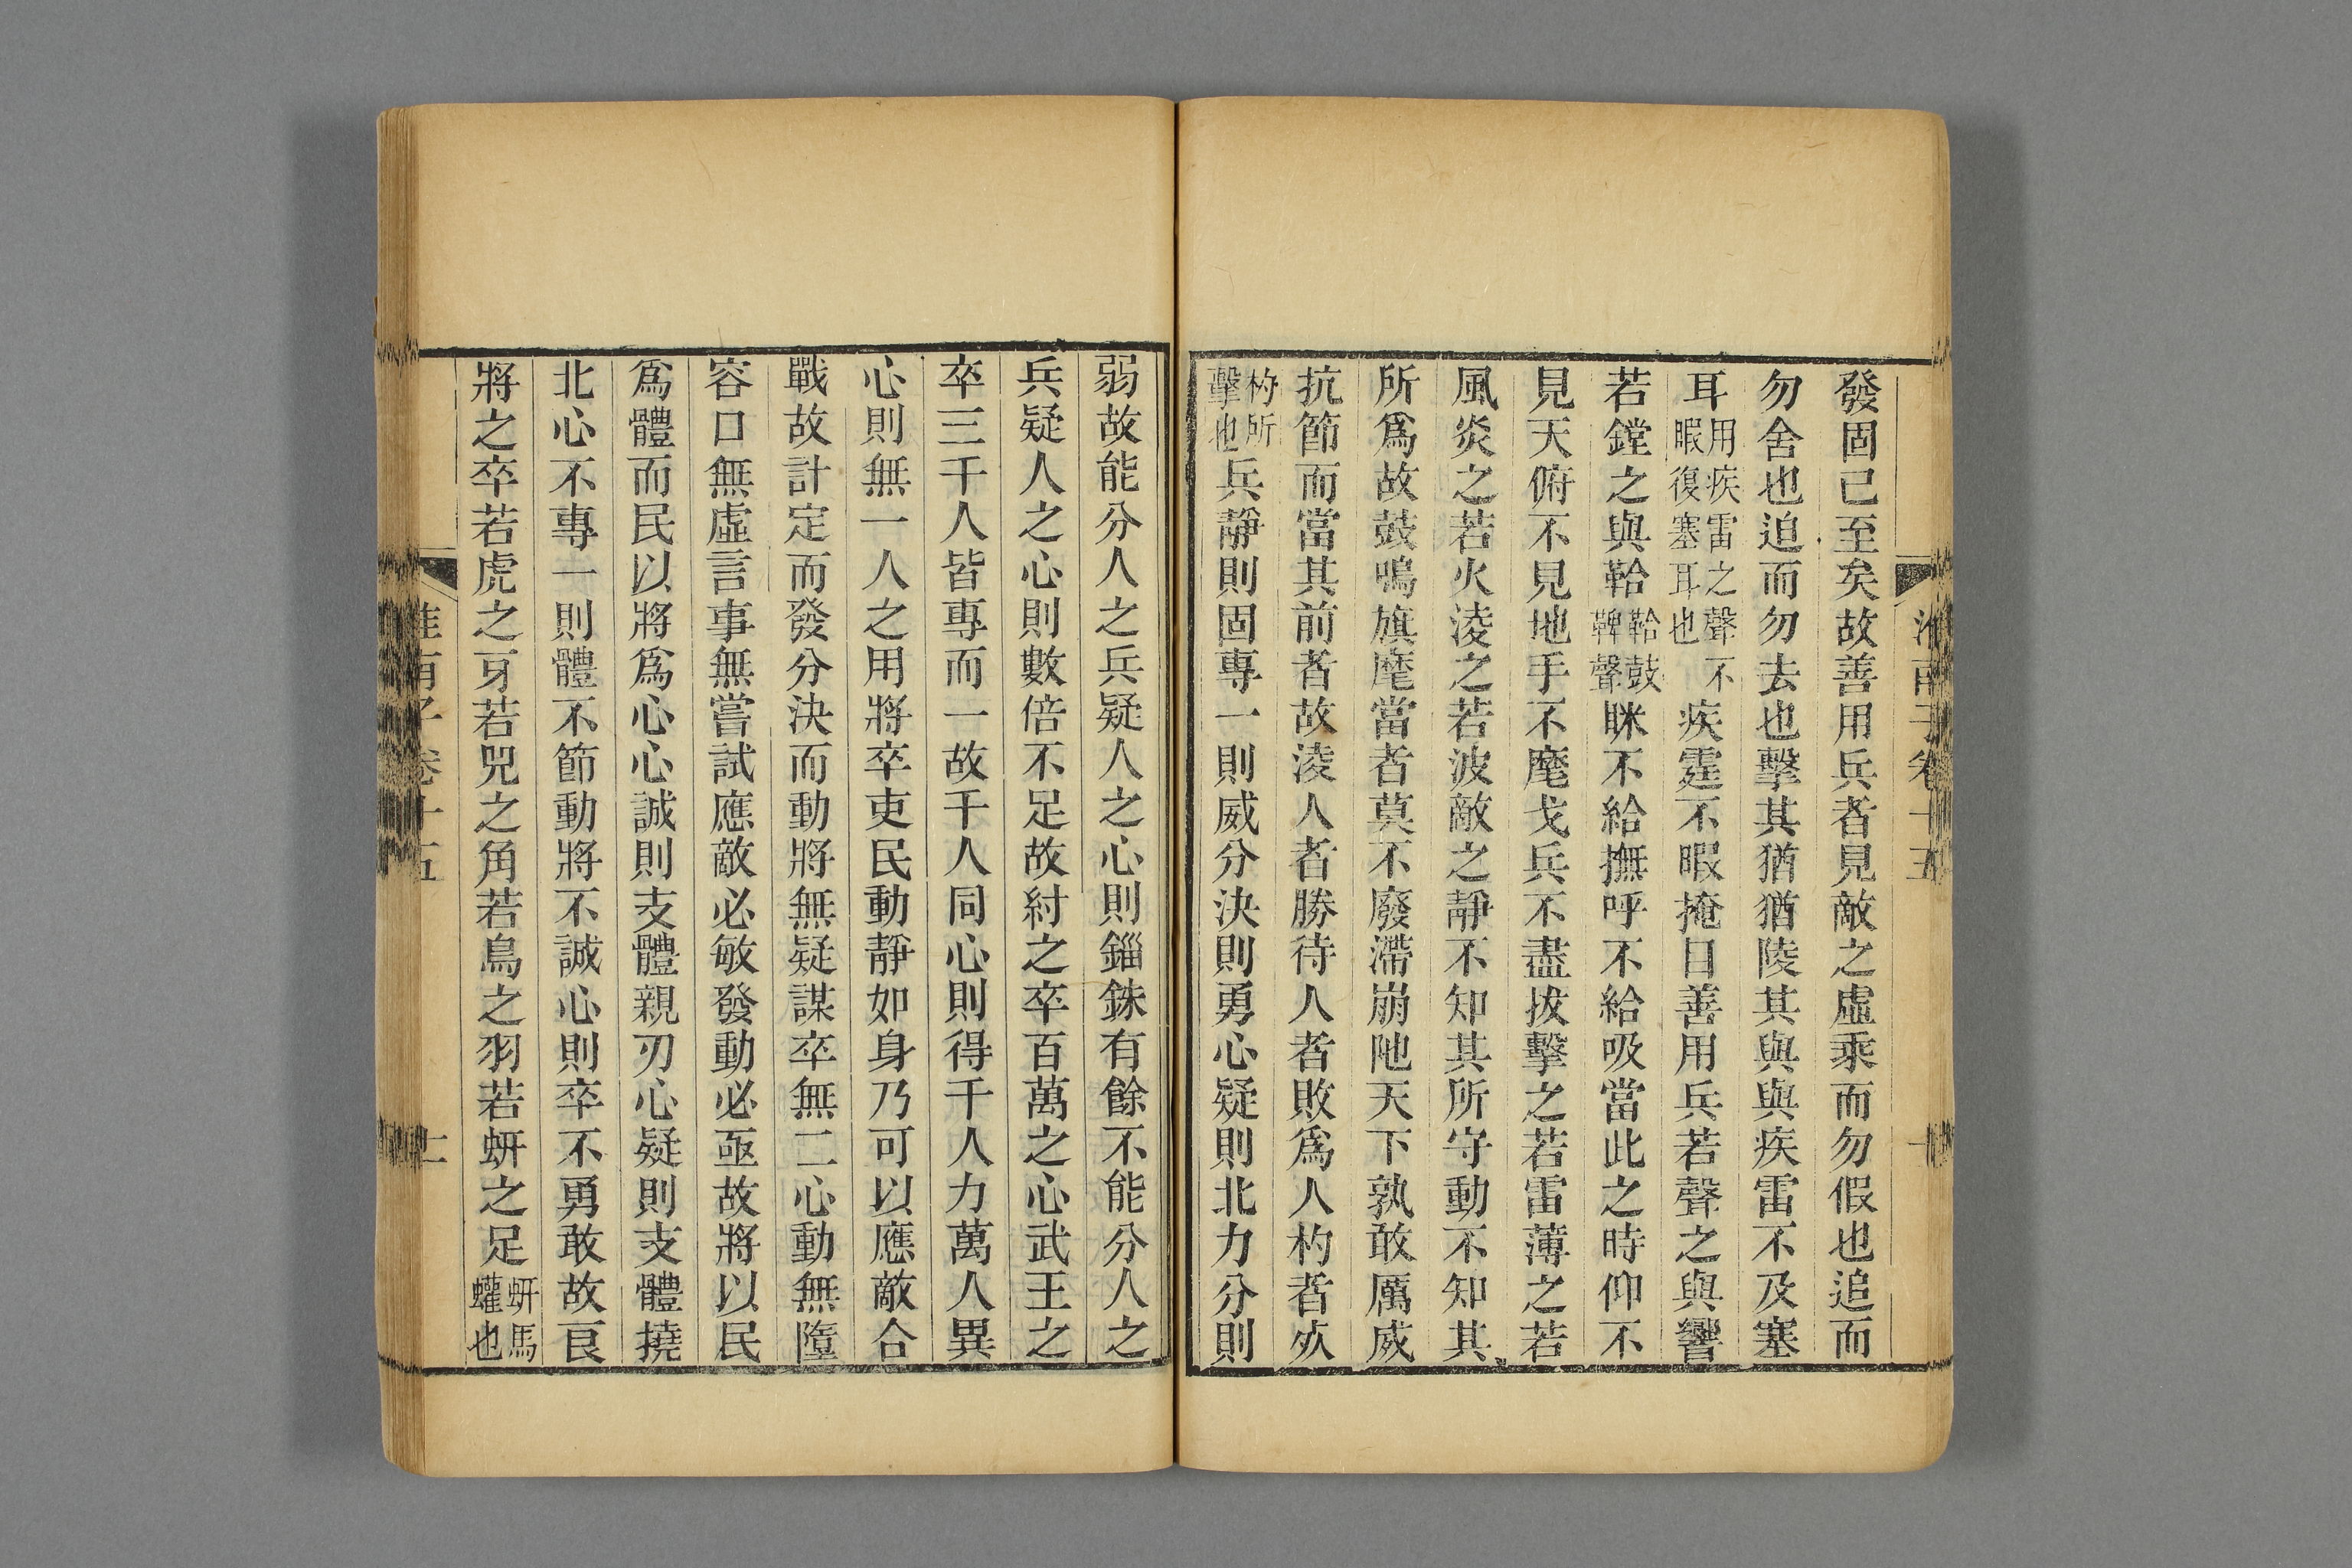 發固已至矣故善用兵者見敵之虛乘而勿假也追而
勿舍也追而勿去也擊其猶猶陵其與與疾雷不及塞
耳用疾雷之聲不暇復塞耳也疾霆不暇掩目善用兵若聲之與響
若鏜之與鞈鞈鼓鞞聲眯不給撫呼不給吸當此之時仰不
見天俯不見地手不麾戈兵不盡拔擊之若雷薄之若
風炎之若火淩之若波敵之靜不知其所守動不知其
所爲故鼓鳴旗麾當者莫不廢滯崩阤天下孰敢厲威
抗節而當其前者故淩人者勝待人者敗爲人杓者㱙
杓所擊也兵靜則固專一則威分決則勇心疑則北力分則
弱故能分人之兵疑人之心則錙銖有餘不能分人之
兵疑人之心則數倍不足故紂之卒百萬之心武王之
卒三千人皆專而一故千人同心則得千人力萬人異
心則無一人之用將卒吏民動靜如身乃可以應敵合
戰故計定而發分決而動將無疑謀卒無二心動無墮
容口無虛言事無嘗試應敵必敏發動必亟故將以民
爲體而民以將爲心心誠則支體親刃心疑則支體撓
北心不專一則體不節動將不誠心則卒不勇敢故良
將之卒若虎之牙若兕之角若鳥之羽若蚈之足蚈馬蠸也
淮南子卷十五